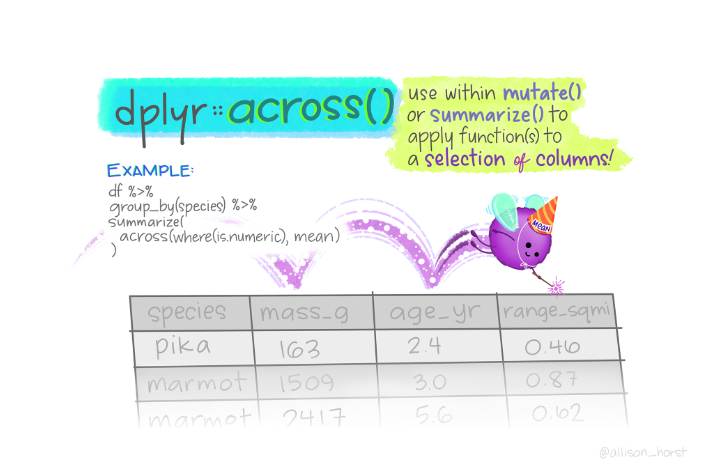 dplyr::across()
use within mutate()
or summarize() to
apply function(s) to
a selection of columns!
EXAMPLE:
df %>%
group_by(species) %>%
summarize(
across(where(is.numeric), mean)
)
MEAN
species mass_g age_yr range_sqmi
pika 163 2.4 0.46
marmot 1509 3.0 0.87
marmot 2417 5.6 0.62
@allison_horst